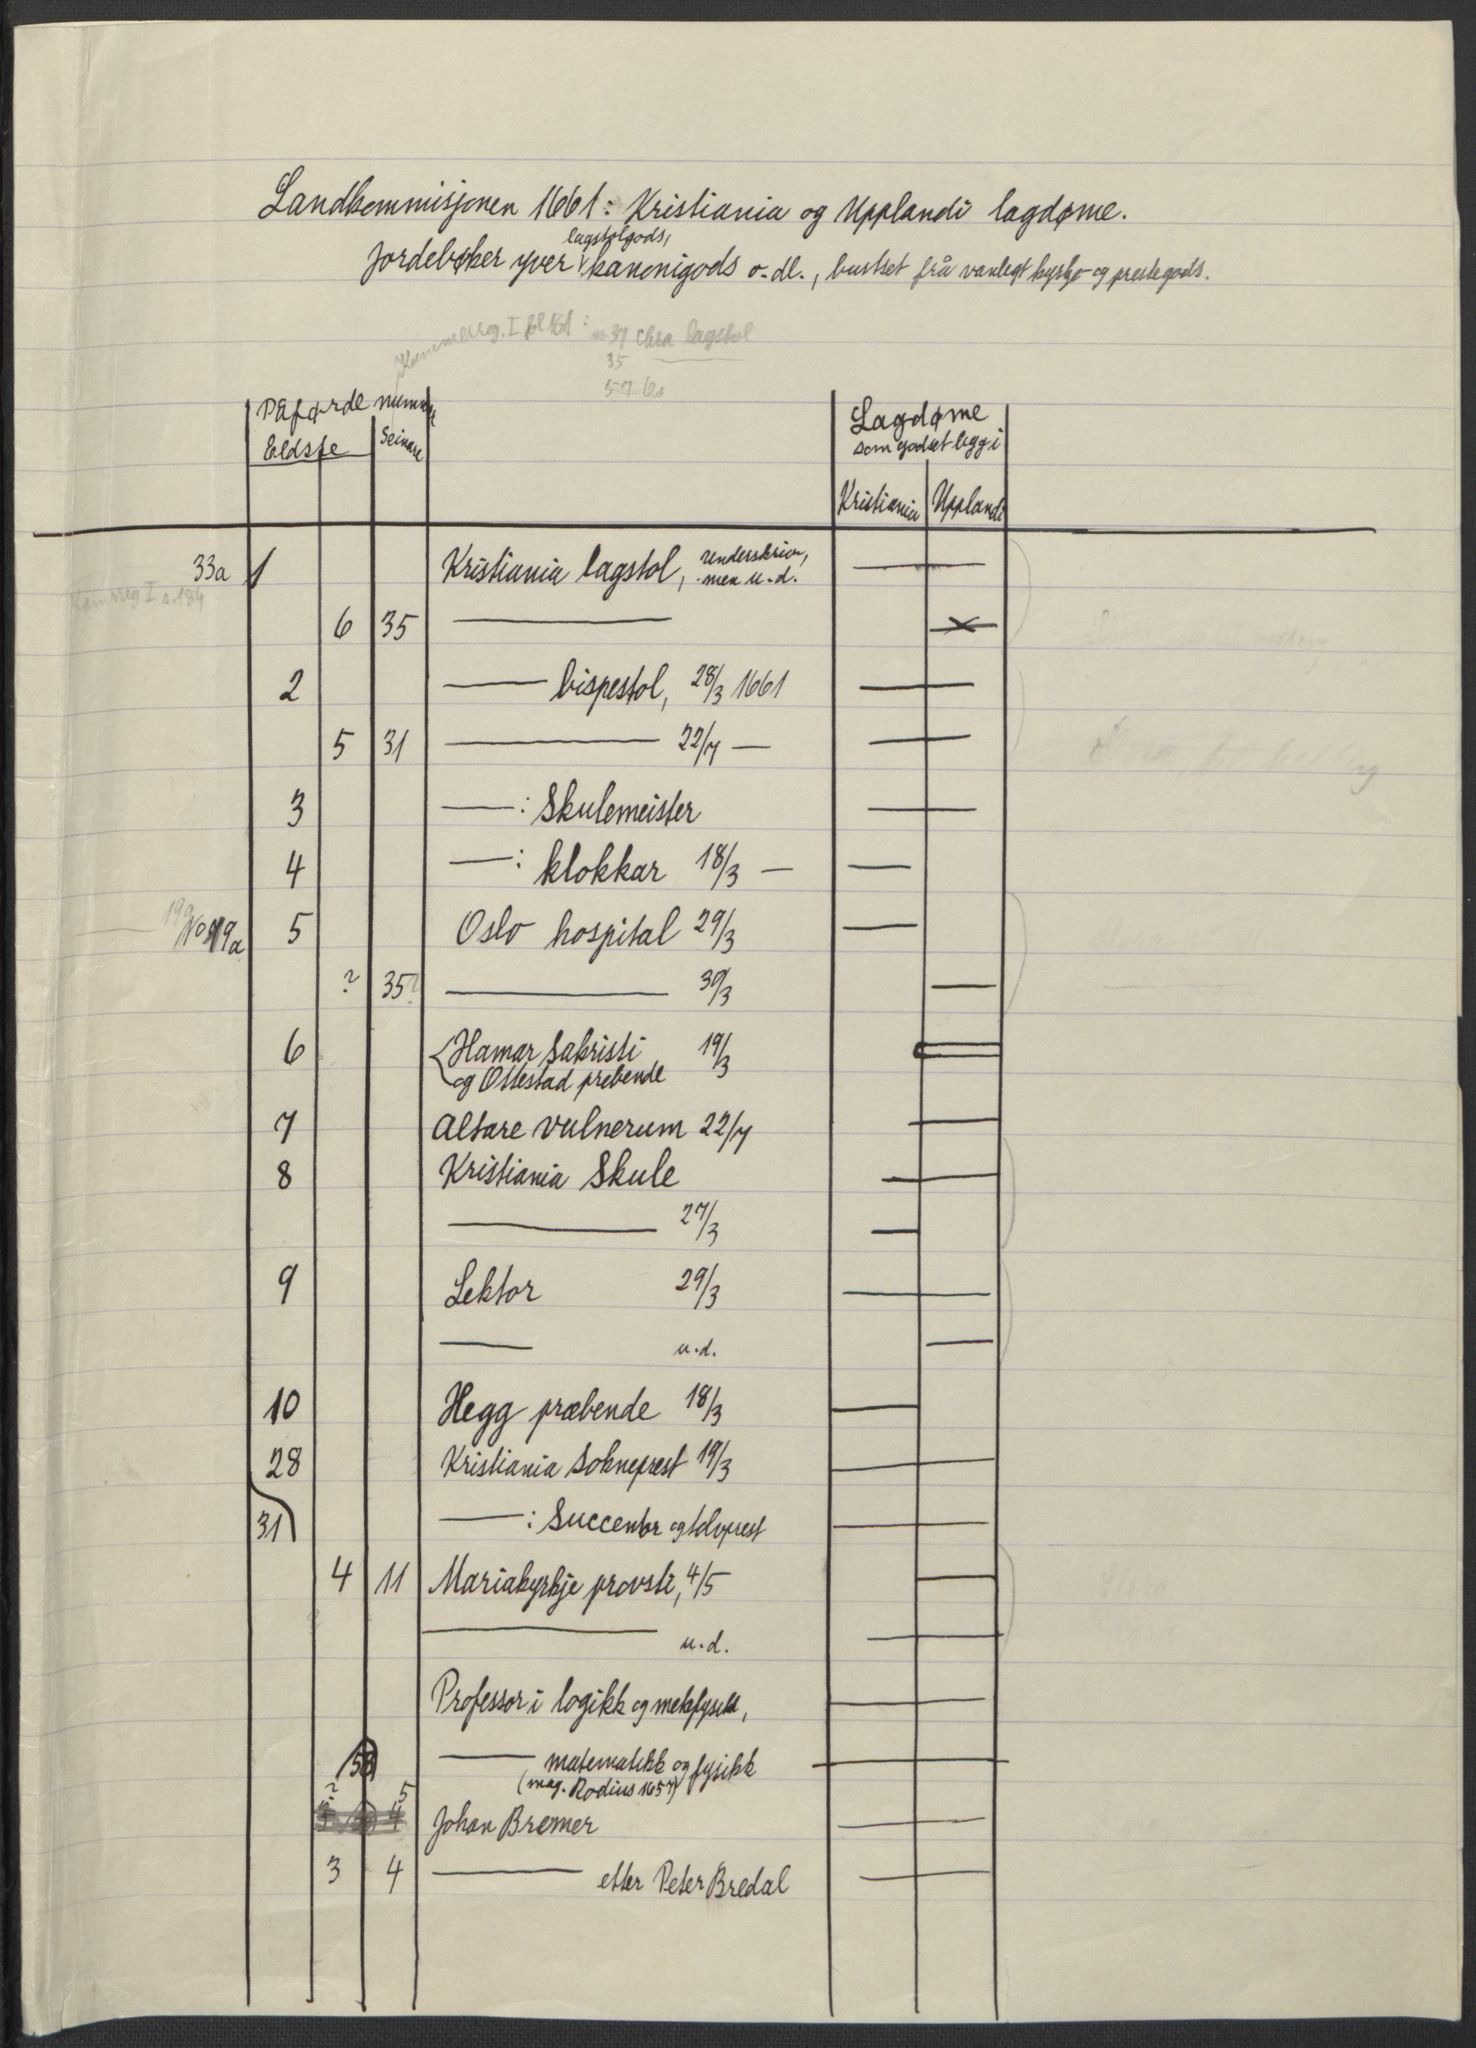 Landkommisjonen 1661: Kristiania og Upplandi lagdøme.
lagstolgods,
Jordebøker yver kanonigods o.dl., burtset frå vanlegt kyrkje- og prestegods.
Kammerreg. I fol 161: 37 Chra lagstol
35
57 6s
Påførde nummer
Eldste Seinare
Lagdøme
som godset ligg i
Kristiania Upplandi
33a 1 Kristiania lagstol, underskrivn, men u.d. —
Kammreg I s. 184
6 35 — x
2 — bispestol, 28/3 1661 —
5 31 — 22/7 — —
3 —: Skulemeister —
4 —: klokkar 18/3 — —
No 19a 5 Oslo hospital 29/3 —
? 35? — 30/3 —
6 Hamar Sakristi 19/3
og Ottestad prebende
7 Altare vulnerum 22/7 —
8 Kristiania Skule —
— 27/3 —
9 Lektor 29/3 —
— u.d. —
10 Hegg præbende 18/3 —
28 Kristiania Sokneprest 19/3 —
31 —: Succentor og tolvprest —
4 11 Mariakyrkje provsti, 4/5 —
— u.d. —
Professor i logikk og metafysikk, —
58 — matematikk og fysikk —
(mag. Rodius 1657)
? 5
Johan Bremer —
3 4 — etter Peter Bredal —